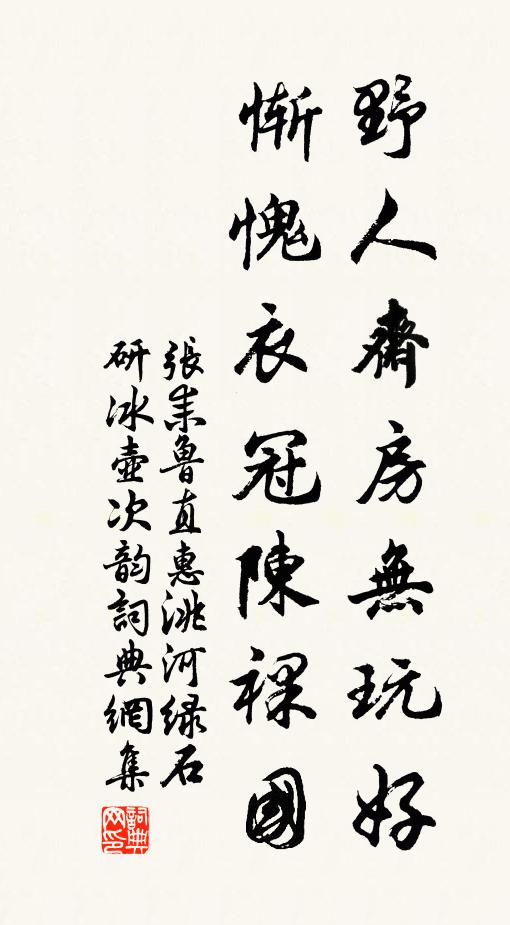 野人齋房無玩好
慚愧衣冠陳裸國
張耒魯直惠洮河綠石
研冰壺次韵詞典網集
詞典网印